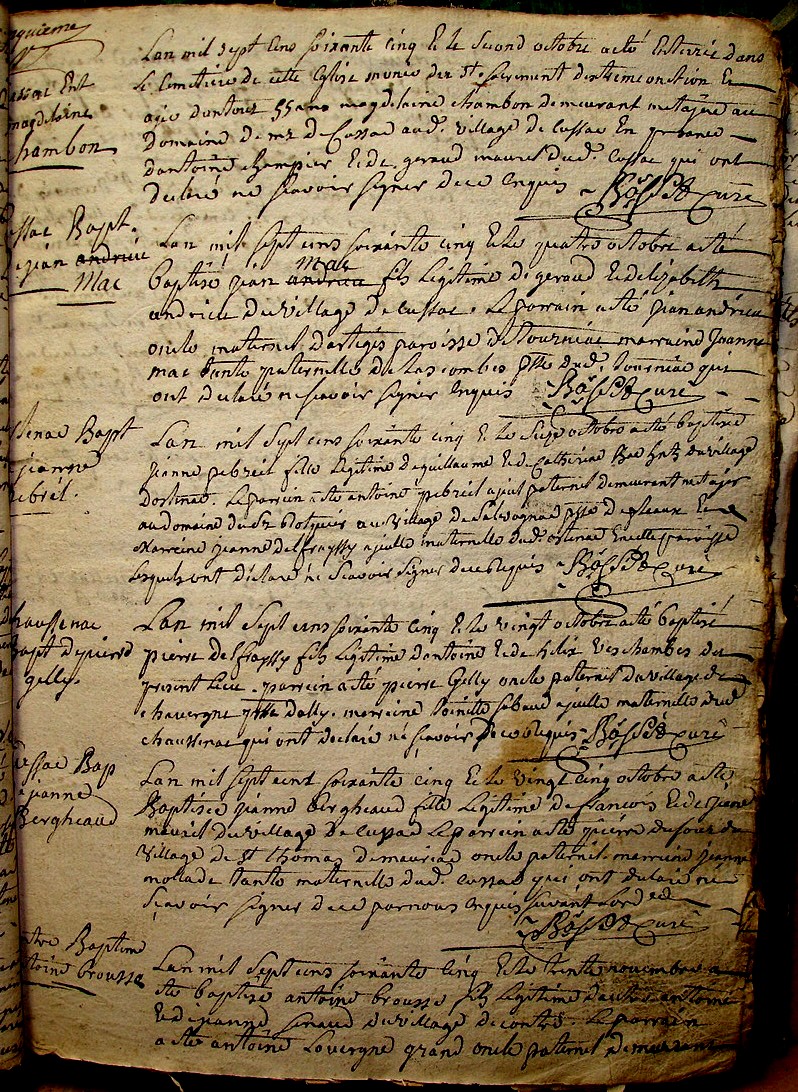 cinquieme
Cussac Ent
magdeleine
chambon
Lan mil sept cens soixante cinq et le second octobre a eté Enterrée dans
le Cimetiere de cette Eglise munie des st. sacrement dextreme onction Et
agée dentour 55 ans magdelaine chambon demeurant metayere au
Domaine de mr de Cussac aud. village de Cussac En presence
dantoine champier Et de geraud maures dud. Cussac qui ont
declaré ne scavoir signer de ce Enquis
Curé
Cussac Bapt.
de jean andrieu
Mac
Lan mil sept cens soixante cinq Et le quatre octobre a eté
mac
baptisé jean andrieu fils Legitime de geraud Et delizabeth
andrieu du village de Cussac. Le parrain a eté jean andrieu
oncle maternel dartigis paroisse de tourniac marraine Jeanne
mac tante paternelle de Lascombes psse dud. tourniac qui
ont declaré ne scavoir signer Enquis
Curé
ostenac Bapt
de jeanne
pebrél.
Lan mil sept cens soixante cinq Et le seize octobre a eté baptisée
jeanne pebreil fille Legitime de guillaume Et de Catherine Bac du village
Dostenac. Le parrein a eté antoine pebreil ajeul paternel demeurant metajer
au domaine du sr au village de Salvagnac psse de pleaux Et
Marreine jeanne delfraissy ajeulle maternelle dud. ostenac En cette paroisse
Lesquels ont déclaré ne scavoir signer de ce Requis
Curé
chaussenac
bapt de pierre
gelly.
Lan mil sept cens soixante cinq Et le vingt octobre a eté baptisé
pierre delfraissy fils Legitime dantoine Et de helix Veschambes du
present Lieu. parrein a eté pierre Gelly oncle paternel du village de
chavergne psse dally. marreine toinette sabaud ajeulle maternelle dud.
chaussenac qui ont declaré ne scavoir de ce Requis
Curé
Cussac Bap
de jeanne
Bergheaud
Lan mil sept cens soixante cinq Et le vingt cinq octobre a eté
Baptisée jeanne bergheaud fille Legitime de francois Et de jeane
mauriel du village De Cussac Le parrein a eté pierre dufour du
village de st thomas de mauriac oncle paternel. marreine jeanne
mollade tante maternelle dud. Cussac qui ont declaré ne
scavoir signer de ce par nous Enquis suivant Lord.
Curé
contre Baptême
antoine brousse
Lan mil sept cens soixante cinq Et le trente novembre a
eté baptisé antoine brousse fils Legitime dautre antoine
Et de jeanne senaud du village de contre. Le parrain
a eté antoine Lavergne grand oncle paternel demeurant